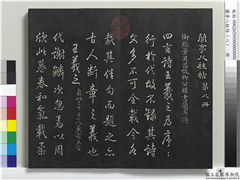 蘭亭八柱帖 第八冊
御臨董其昌倣柳公權書蘭亭詩
四言詩王羲之為序序
行於代故不錄其詩
文多不可全載今各
裁其佳句而題之亦
古人斷章之義也
王羲之
代謝鱗次忽焉以周
欣此暮春和氣載柔